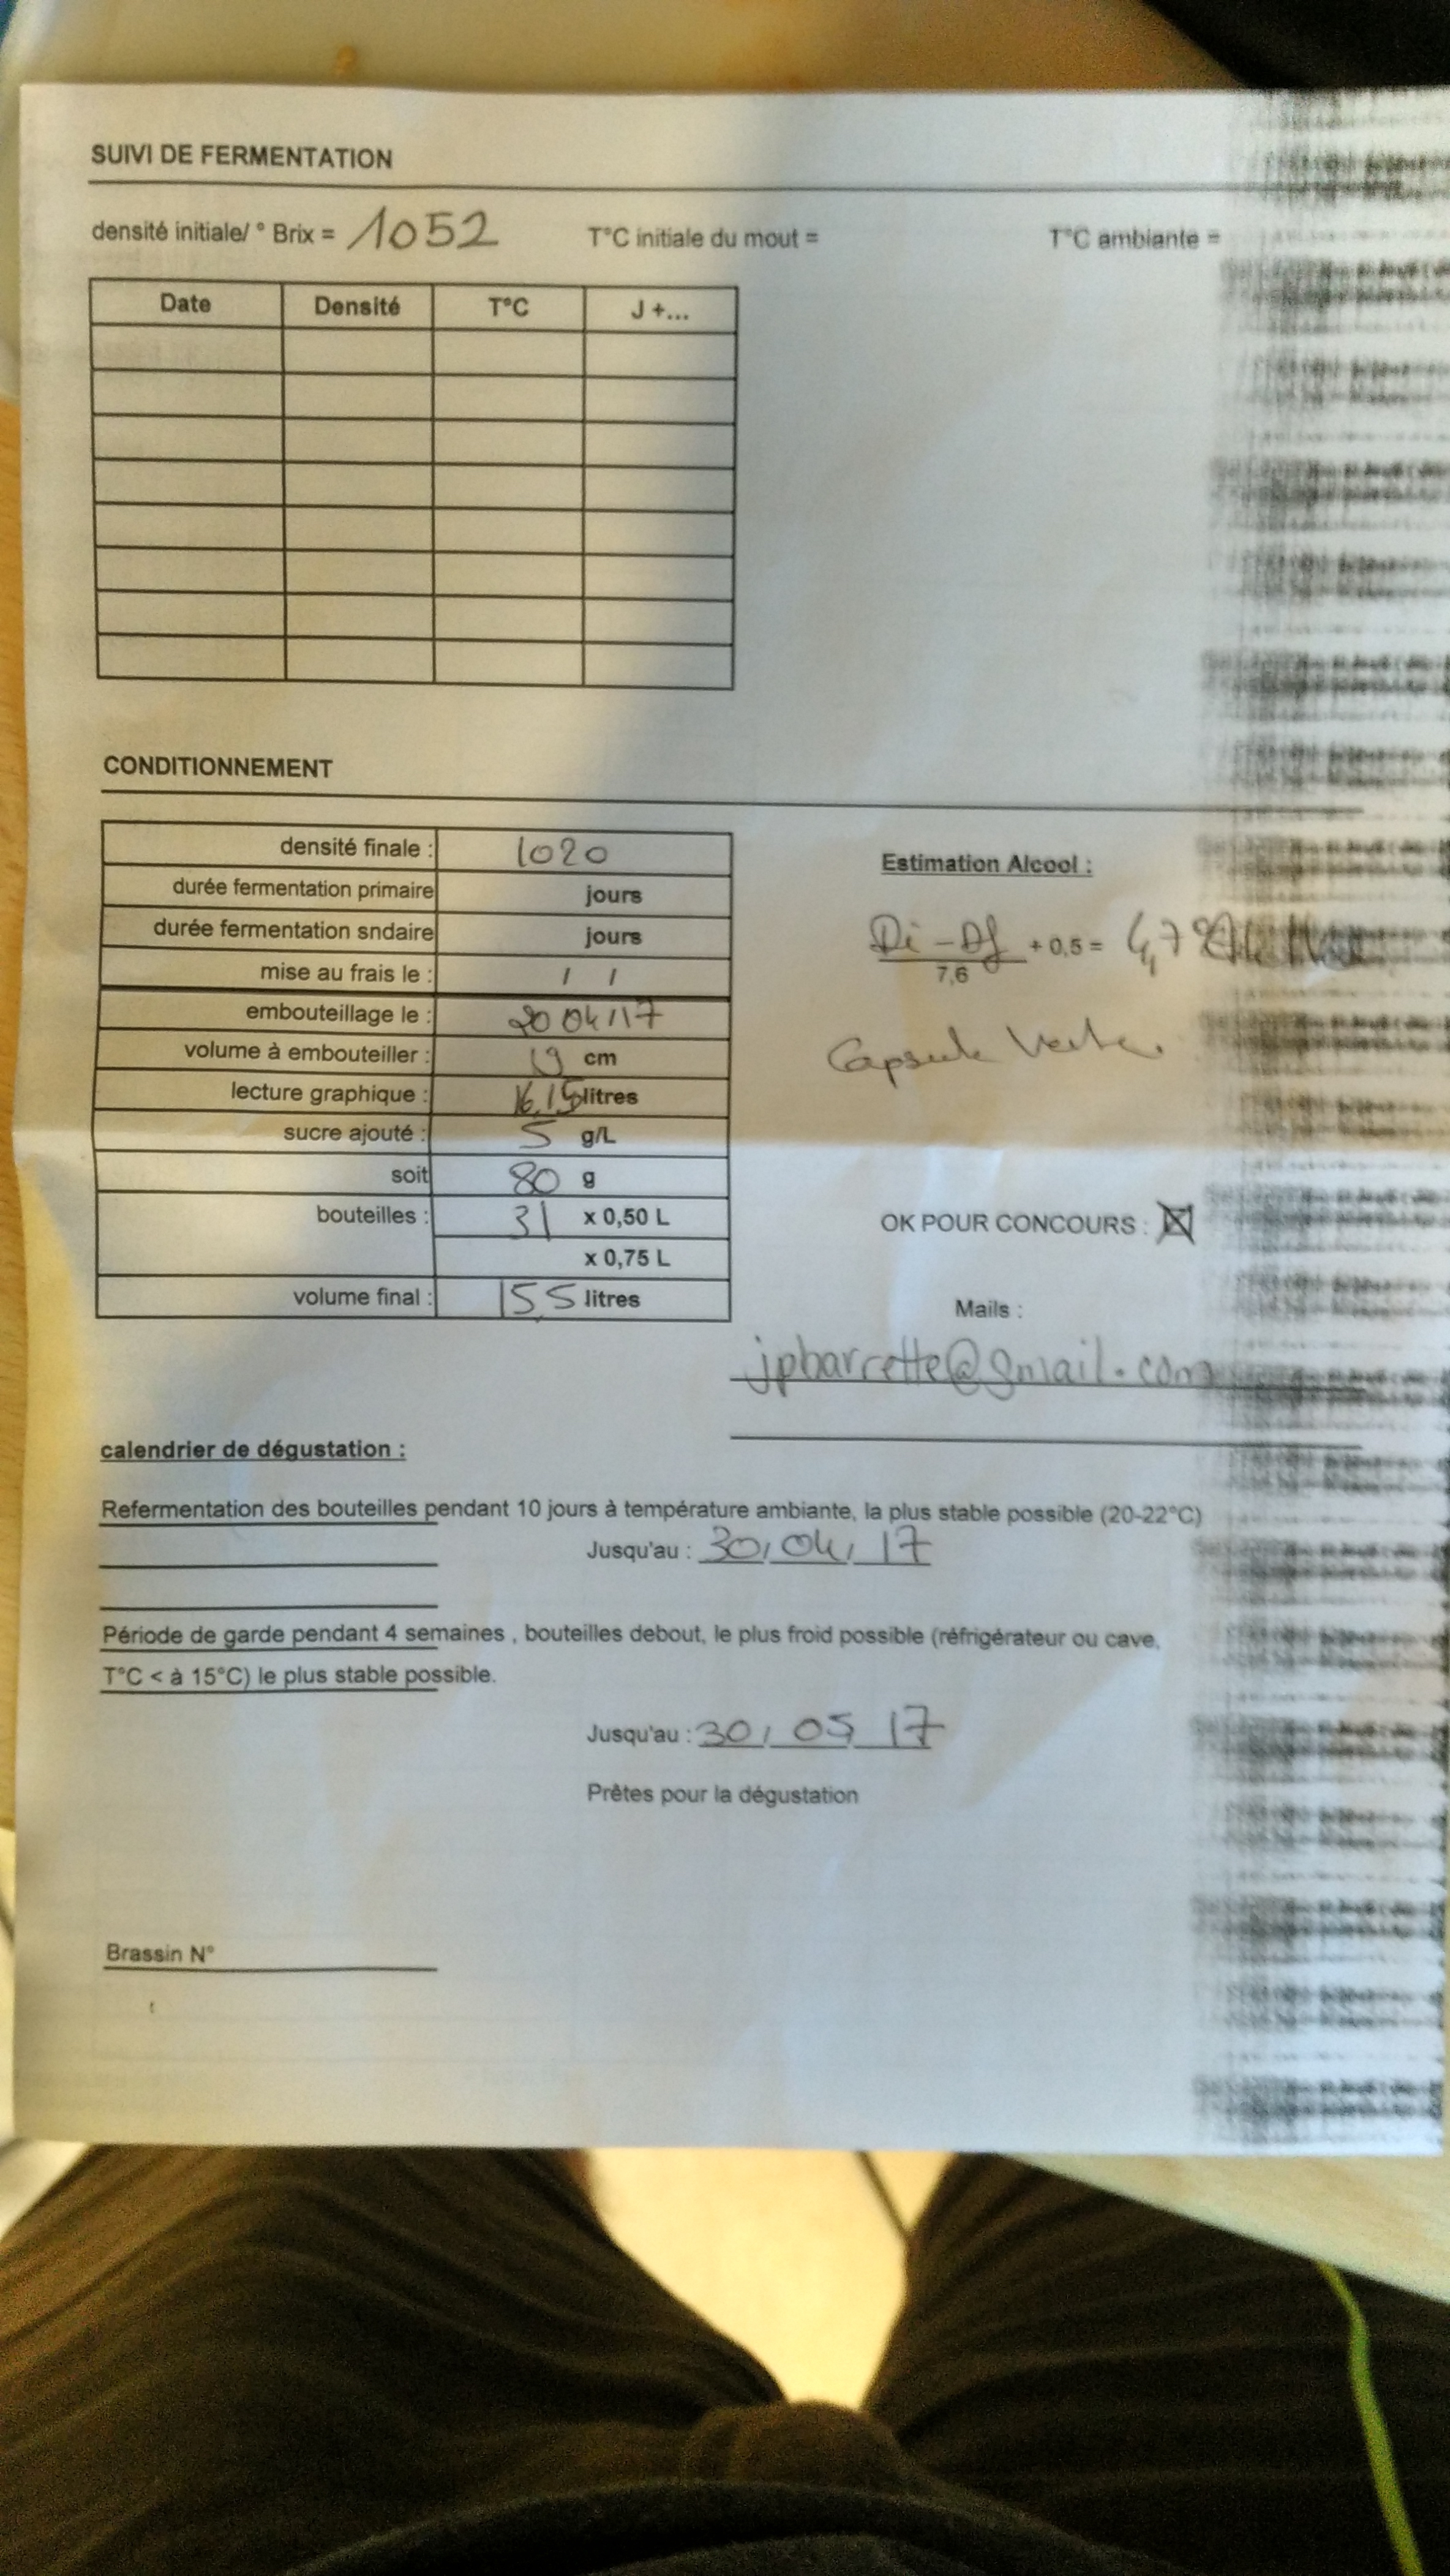 SUIVI DE FERMENTATION
densité initiale/ ° Brix = 1052 T°C initiale du mout = T°C ambiante =
Date Densité T°C J +...
CONDITIONNEMENT
densité finale : 1020
durée fermentation primaire jours
durée fermentation sndaire jours
mise au frais le : / /
embouteillage le : 20/04/17
volume à embouteiller : 19 cm
lecture graphique : 16,15 litres
sucre ajouté : 5 g/L
soit 80 g
bouteilles : 31 x 0,50 L
x 0,75 L
volume final : 15,5 litres
Estimation Alcool :
Di - Df
7,6
+ 0,5 = 4,7
Capsule Verte.
OK POUR CONCOURS :
Mails :
jpbarrette@gmail.com
calendrier de dégustation :
Refermentation des bouteilles pendant 10 jours à température ambiante, la plus stable possible (20-22°C)
Jusqu'au : 30/04/17
Période de garde pendant 4 semaines , bouteilles debout, le plus froid possible (réfrigérateur ou cave,
T°C < à 15°C) le plus stable possible.
Jusqu'au : 30/05 17
Prêtes pour la dégustation
Brassin N°